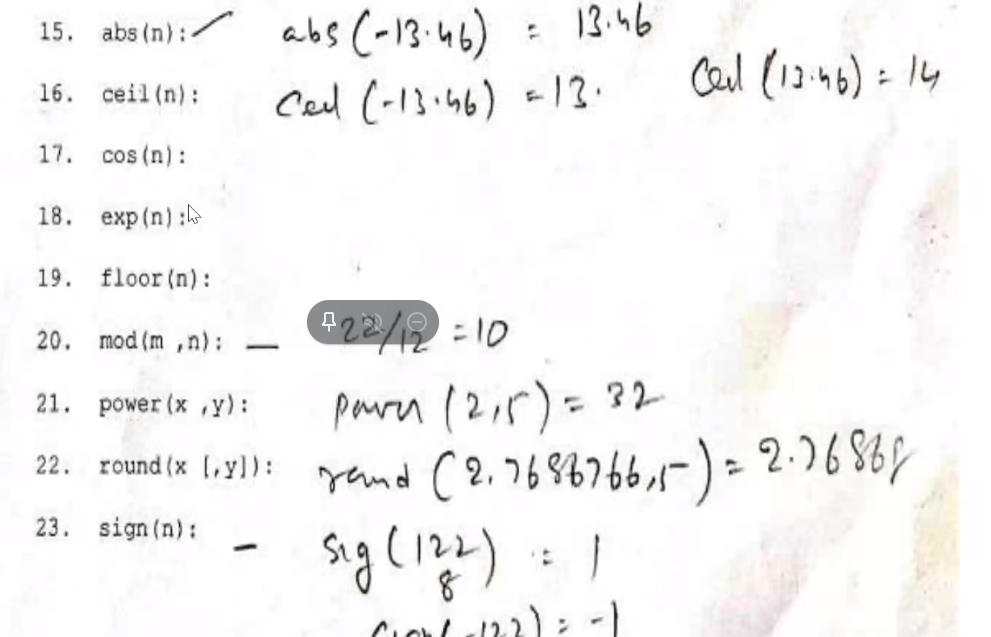 15. abs(n): abs(-13.46) = 13.46
16. ceil(n): Ceil (-13.46) = 13. Ceil (13.46) = 14
17. cos(n):
18. exp(n):
19. floor(n):
20. mod(m ,n): — 22/12 = 10
21. power(x ,y): power (2,5) = 32
22. round(x [,y]): round (2.7686766,5) = 2.76868
23. sign(n): – sig (122) = 1
8
sign(-122) = -1